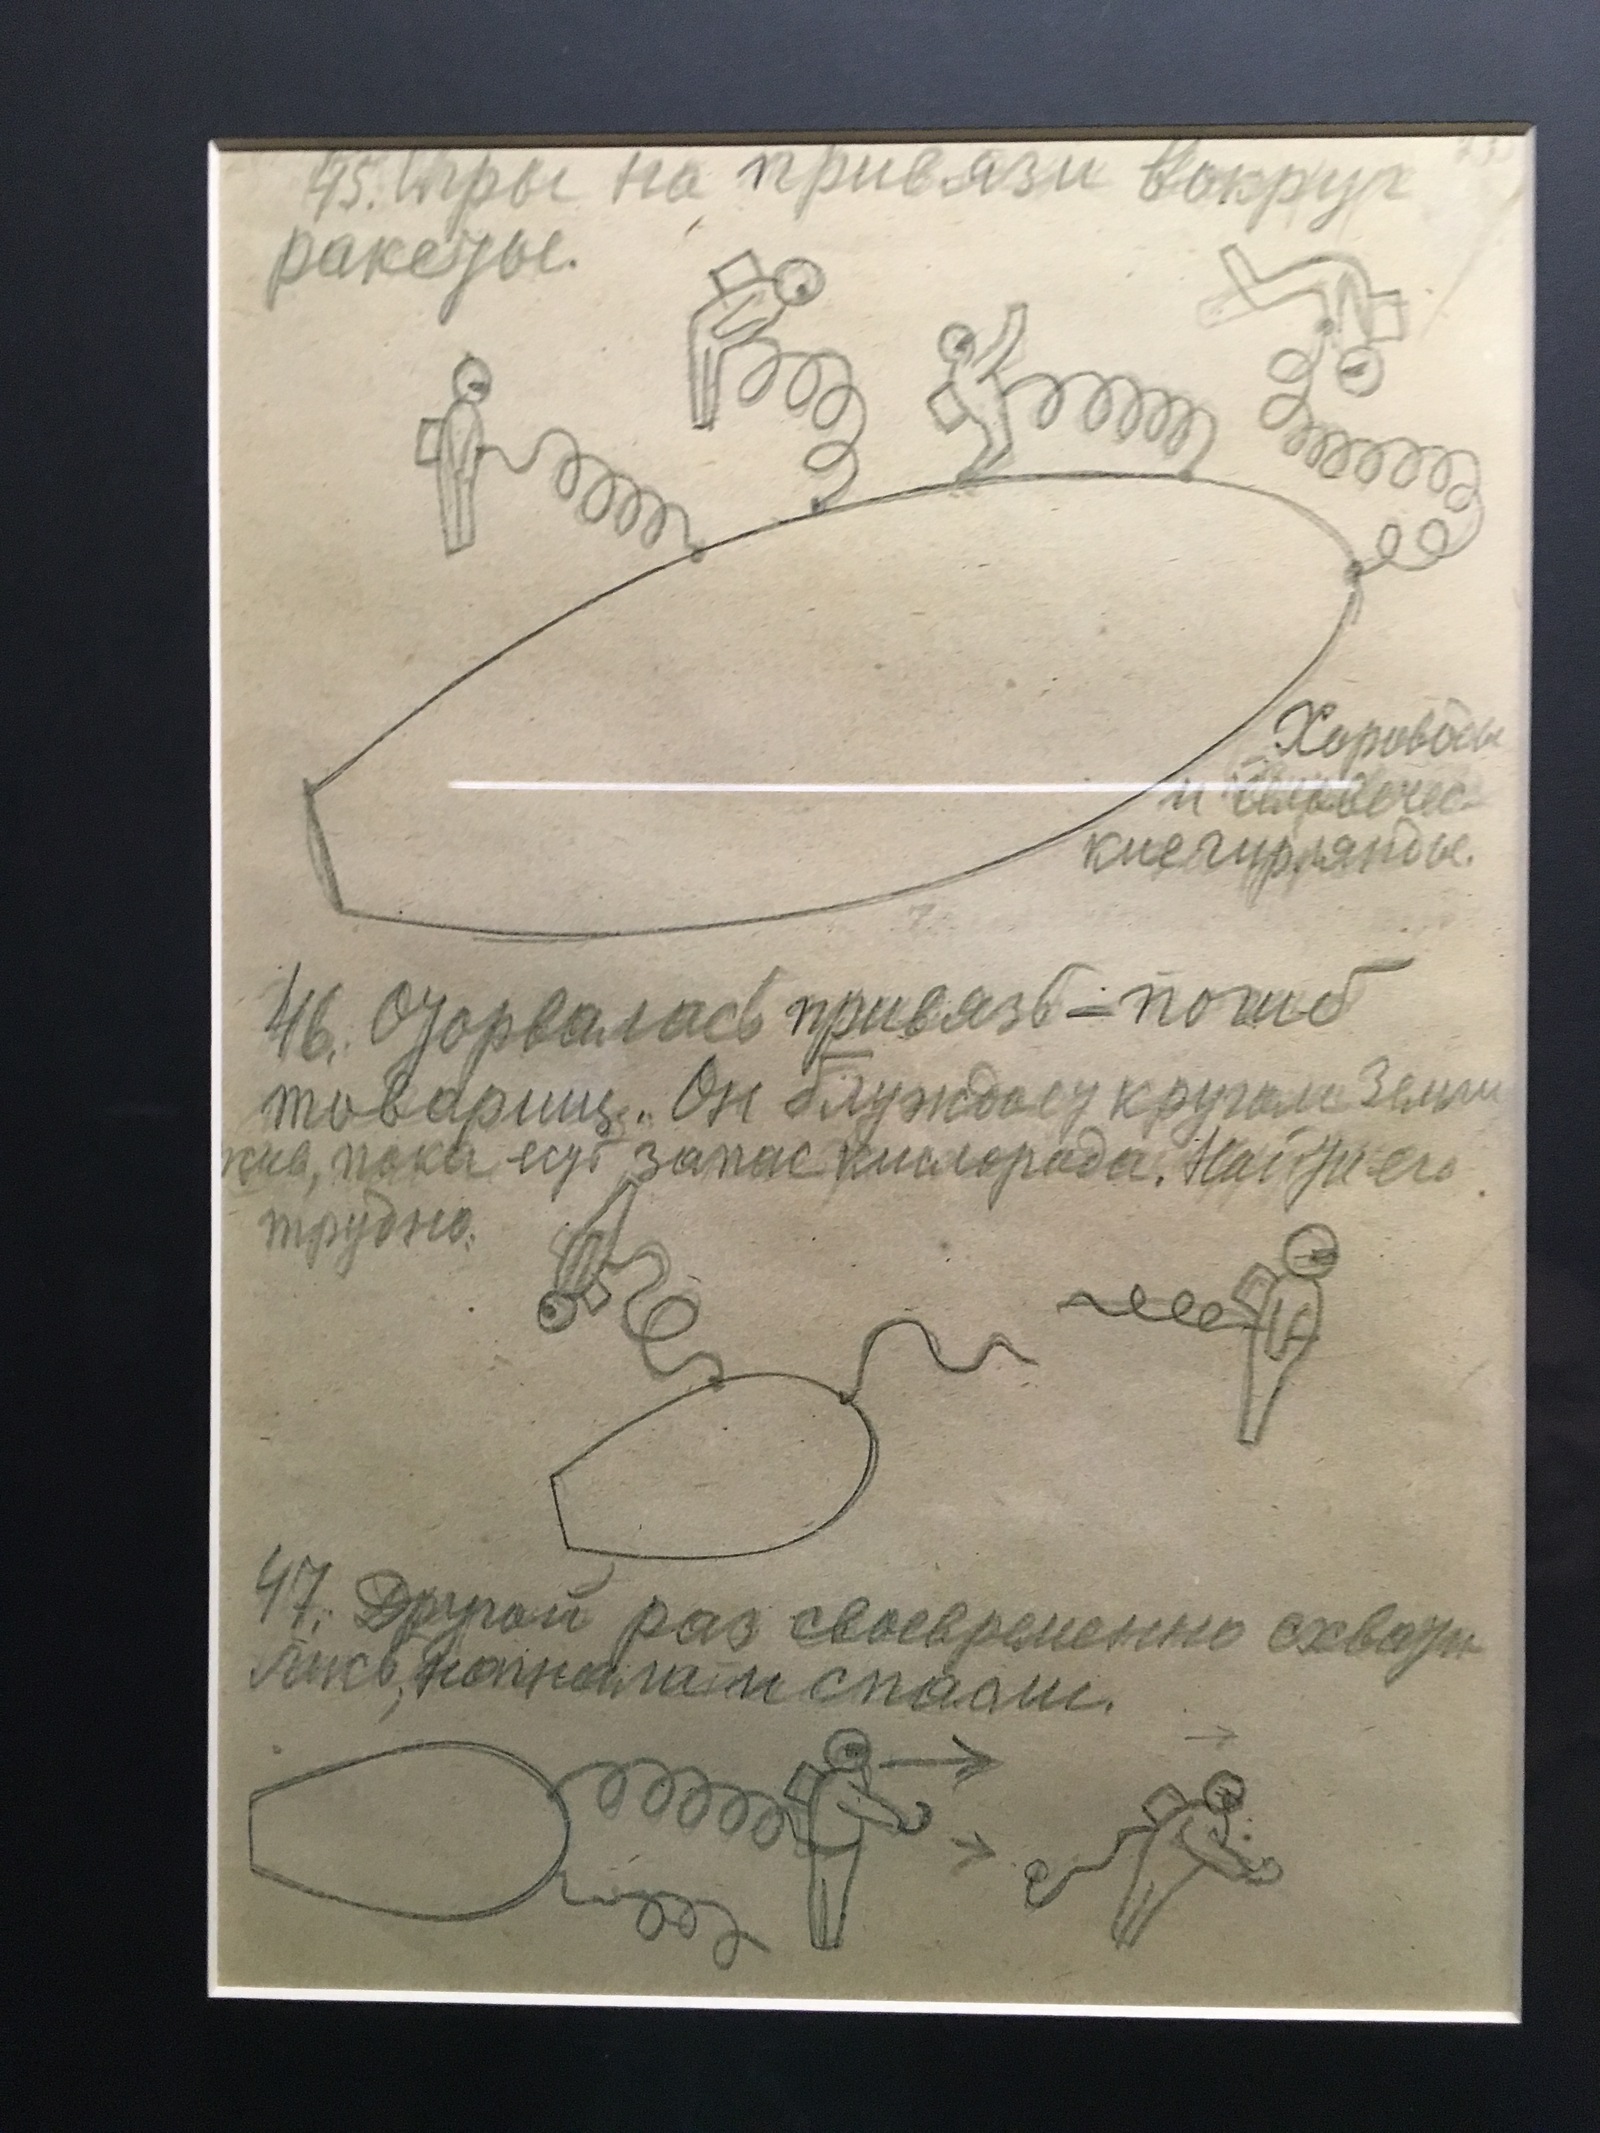 45. Игры на привязи вокруг
ракеты.
Хороводы
и человечес-
кие гирлянды.
46. Оторвалась привязь – погиб
товарищ. Он блуждает кругом Земли
жив, пока есть запас кислорода. Найти его
трудно.
47. Другой раз своевременно схвати-
лись, нагнали и спасли.